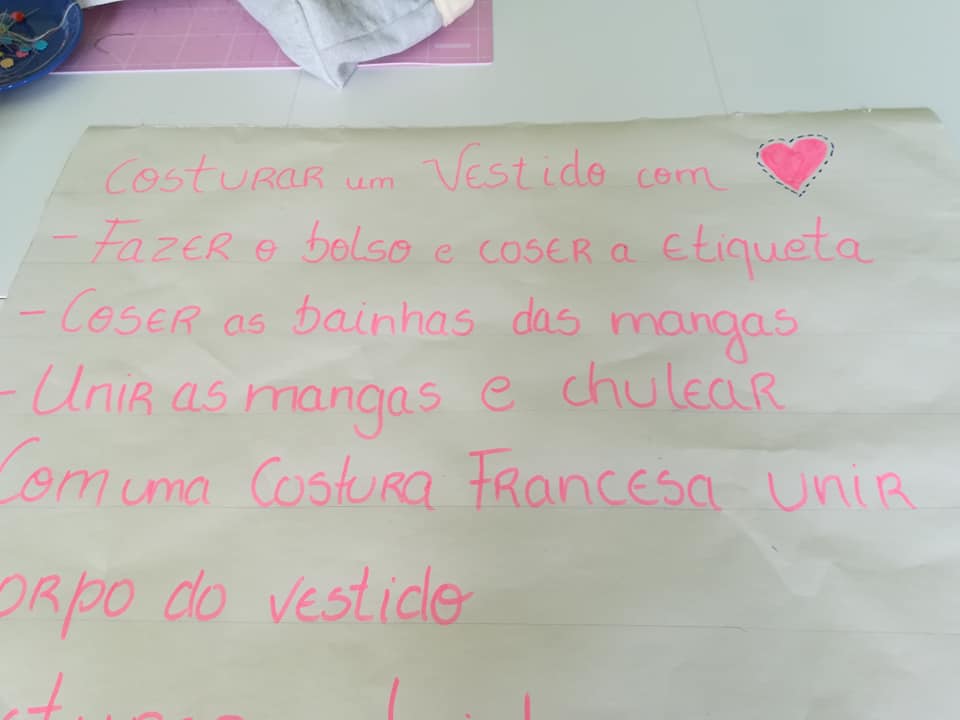 Costurar um Vestido com
- Fazer o bolso e coser a etiqueta
- Coser as bainhas das mangas
- Unir as mangas e chulear
Com uma Costura Francesa unir
orpo do vestido